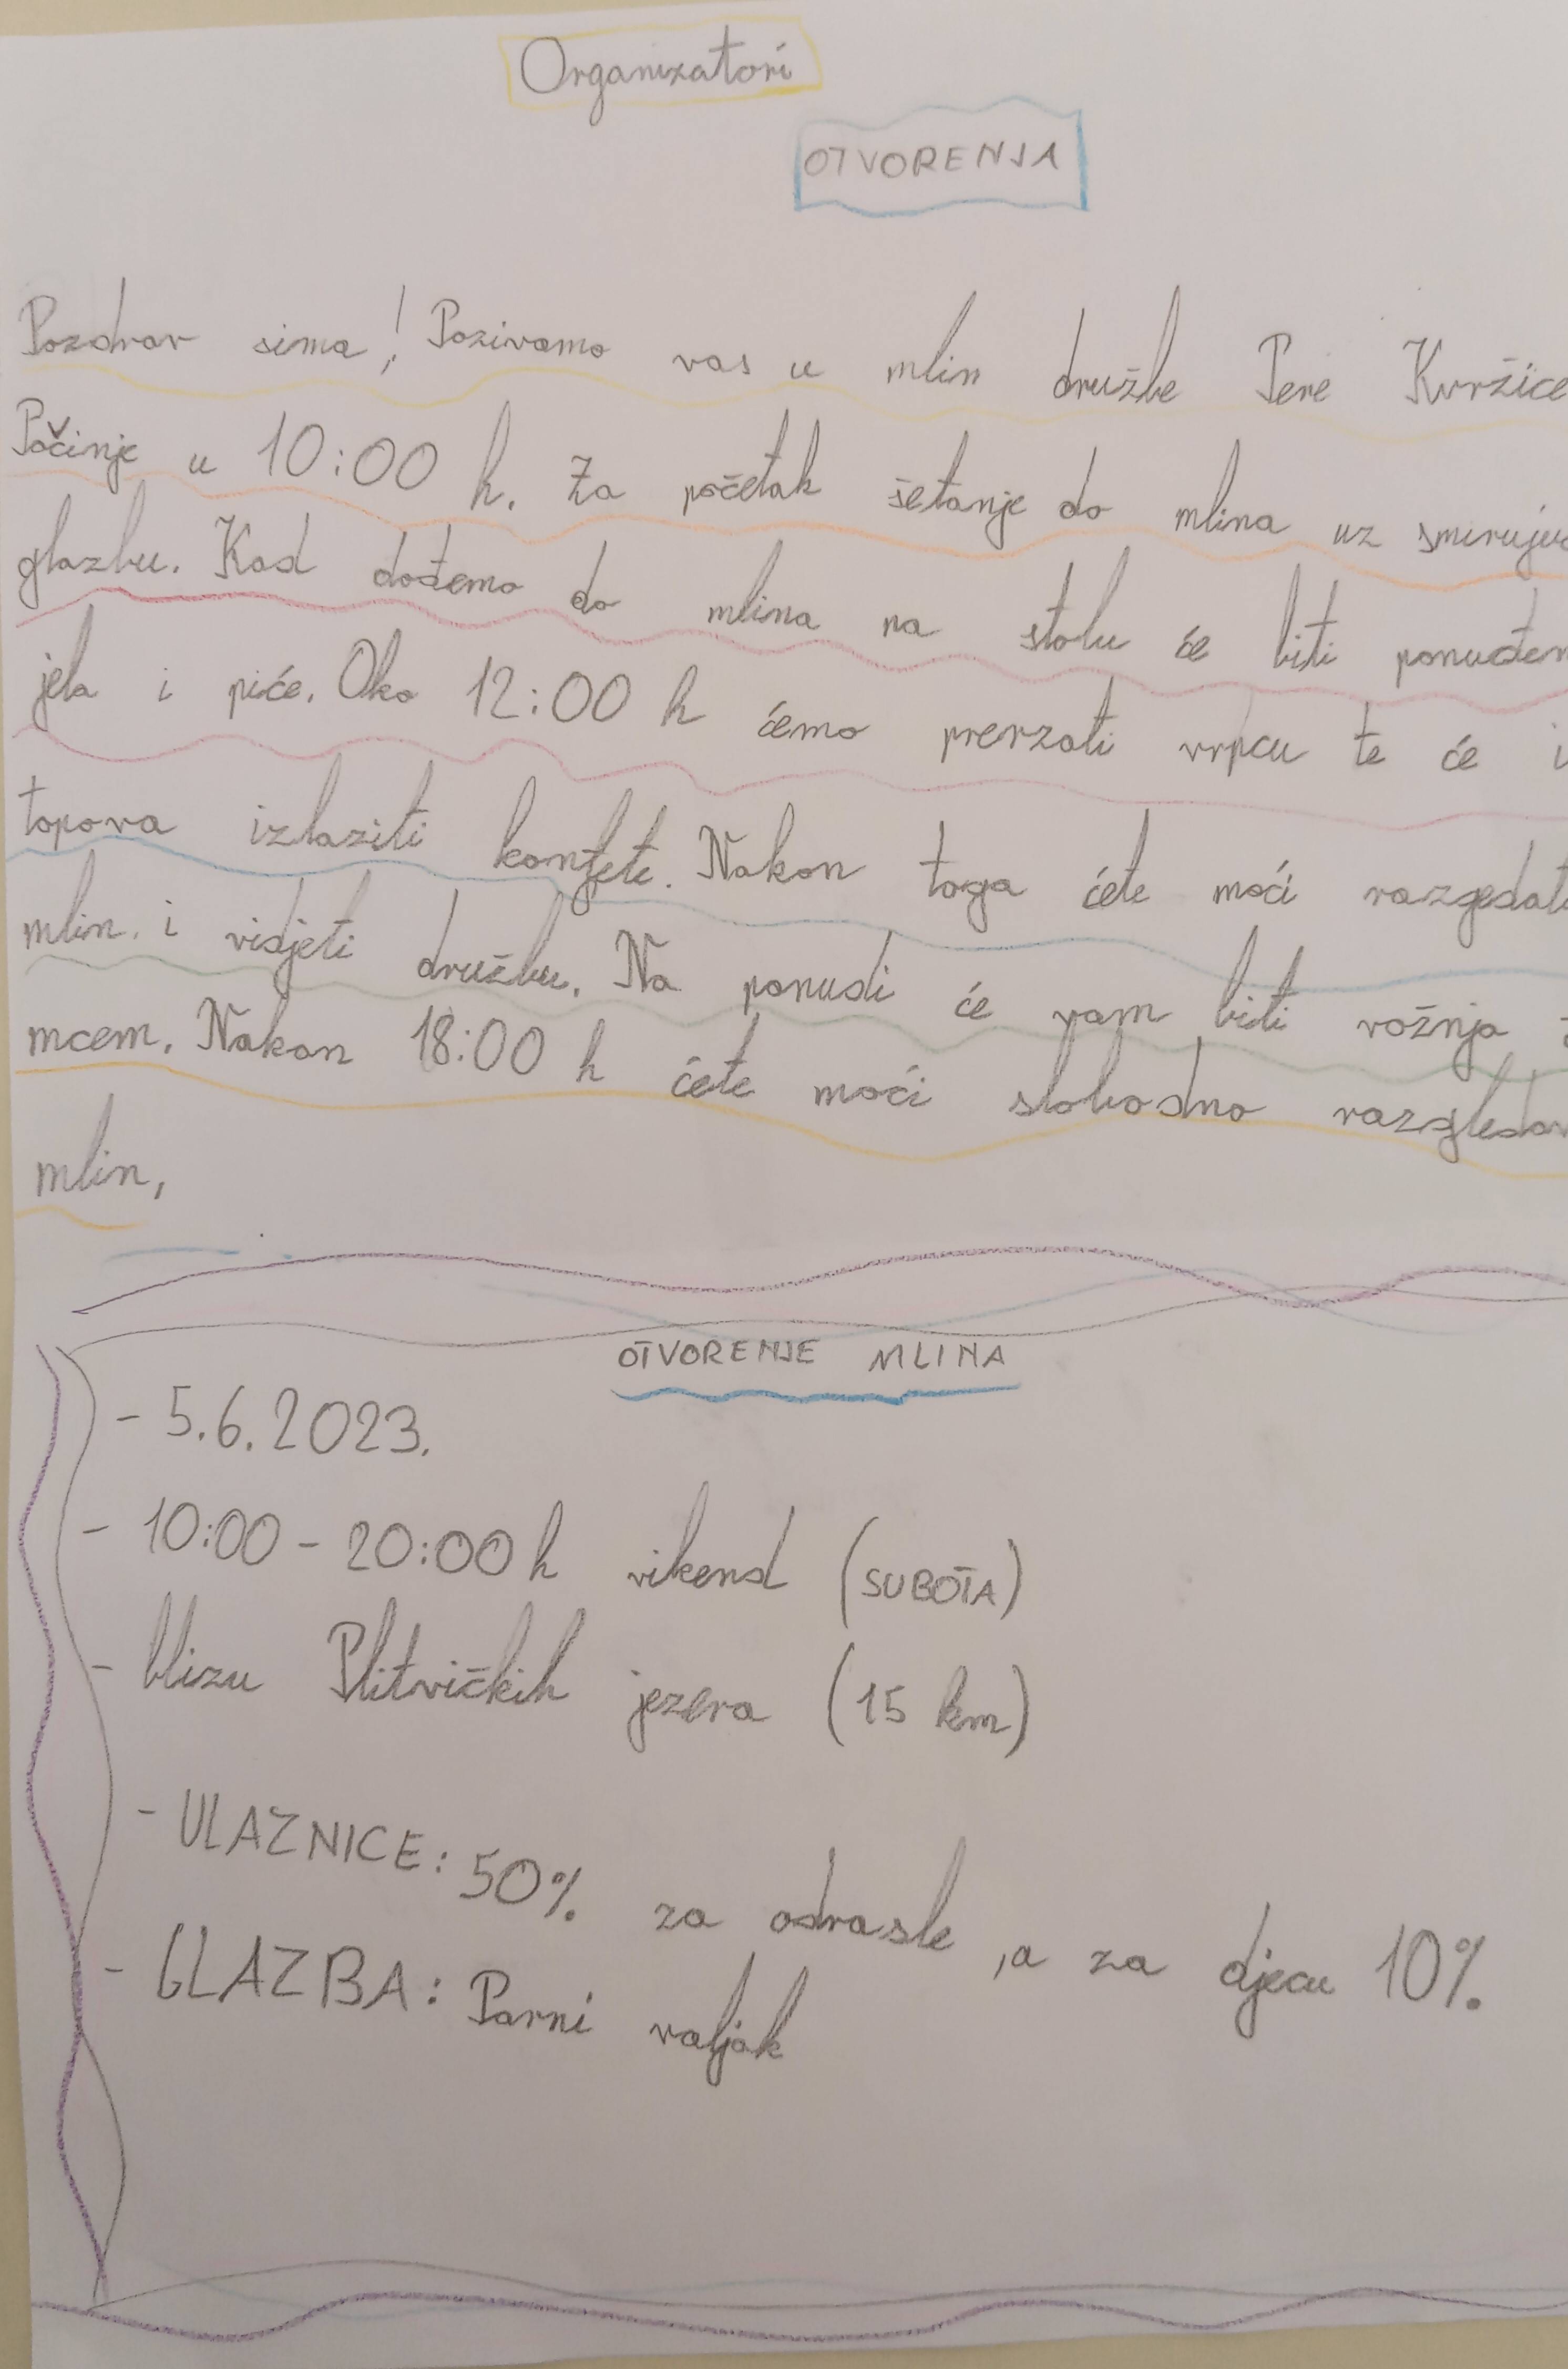 Organizatori
OTVORENJA
Pozdrav sima! Pozivamo vas u mlin družbe Pere Kvržice
Počinje u 10:00 h. Za početak šetanje do mlina uz smirujuć
glazbu. Kad dođemo do mlina na stolu će biti ponuđen
jela i piće. Oko 12:00 h ćemo prerzati vrpcu te će i
topova izlaziti konfete. Nakon toga ćete moći razgedat
mlin. i vidjeti družbu. Na ponudi će vam biti vožnja
mcem. Nakon 18:00 h ćete moći slobodno razgledav
mlin,
OTVORENJE MLINA
- 5.6.2023.
- 10:00 - 20:00 h vikend (SUBOTA)
- blizu Plitvičkih jezera (15 km)
- ULAZNICE: 50% za odrasle, a za djecu 10%
- GLAZBA: Parni valjak